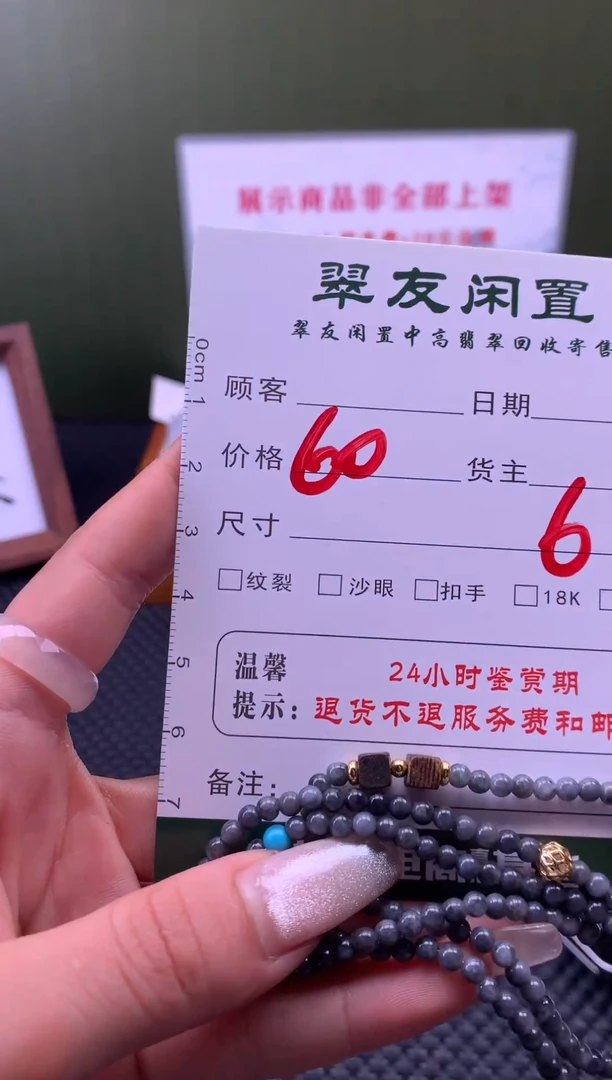 展示商品非全部上架
翠友闲置
翠友闲置中高翡翠回收寄售
0cm 1 2 3 4 5 6 7
顾客 日期
价格 60 货主
尺寸 6
纹裂 沙眼 扣手 18K
温馨提示：
24小时鉴赏期
退货不退服务费和邮
备注：